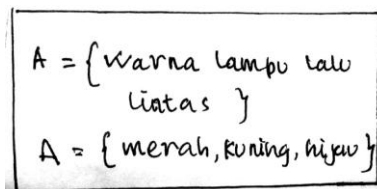 A = { warna lampu lalu
lintas }
A = { merah, kuning, hijau }